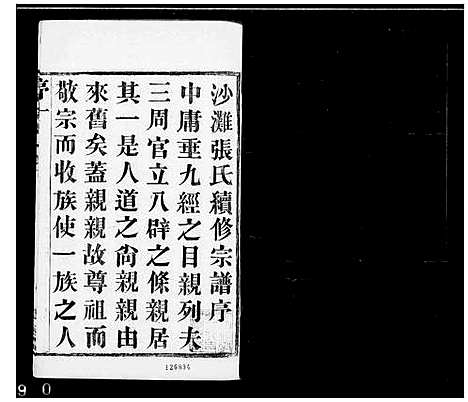 沙灘張氏續修宗譜序
中庸垂九經之目親列夫
三周官立八辟之條親居
其一是人道之尙親親由
來舊矣蓋親親故尊祖而
敬宗而收族使一族之人
序一
126896
9 0